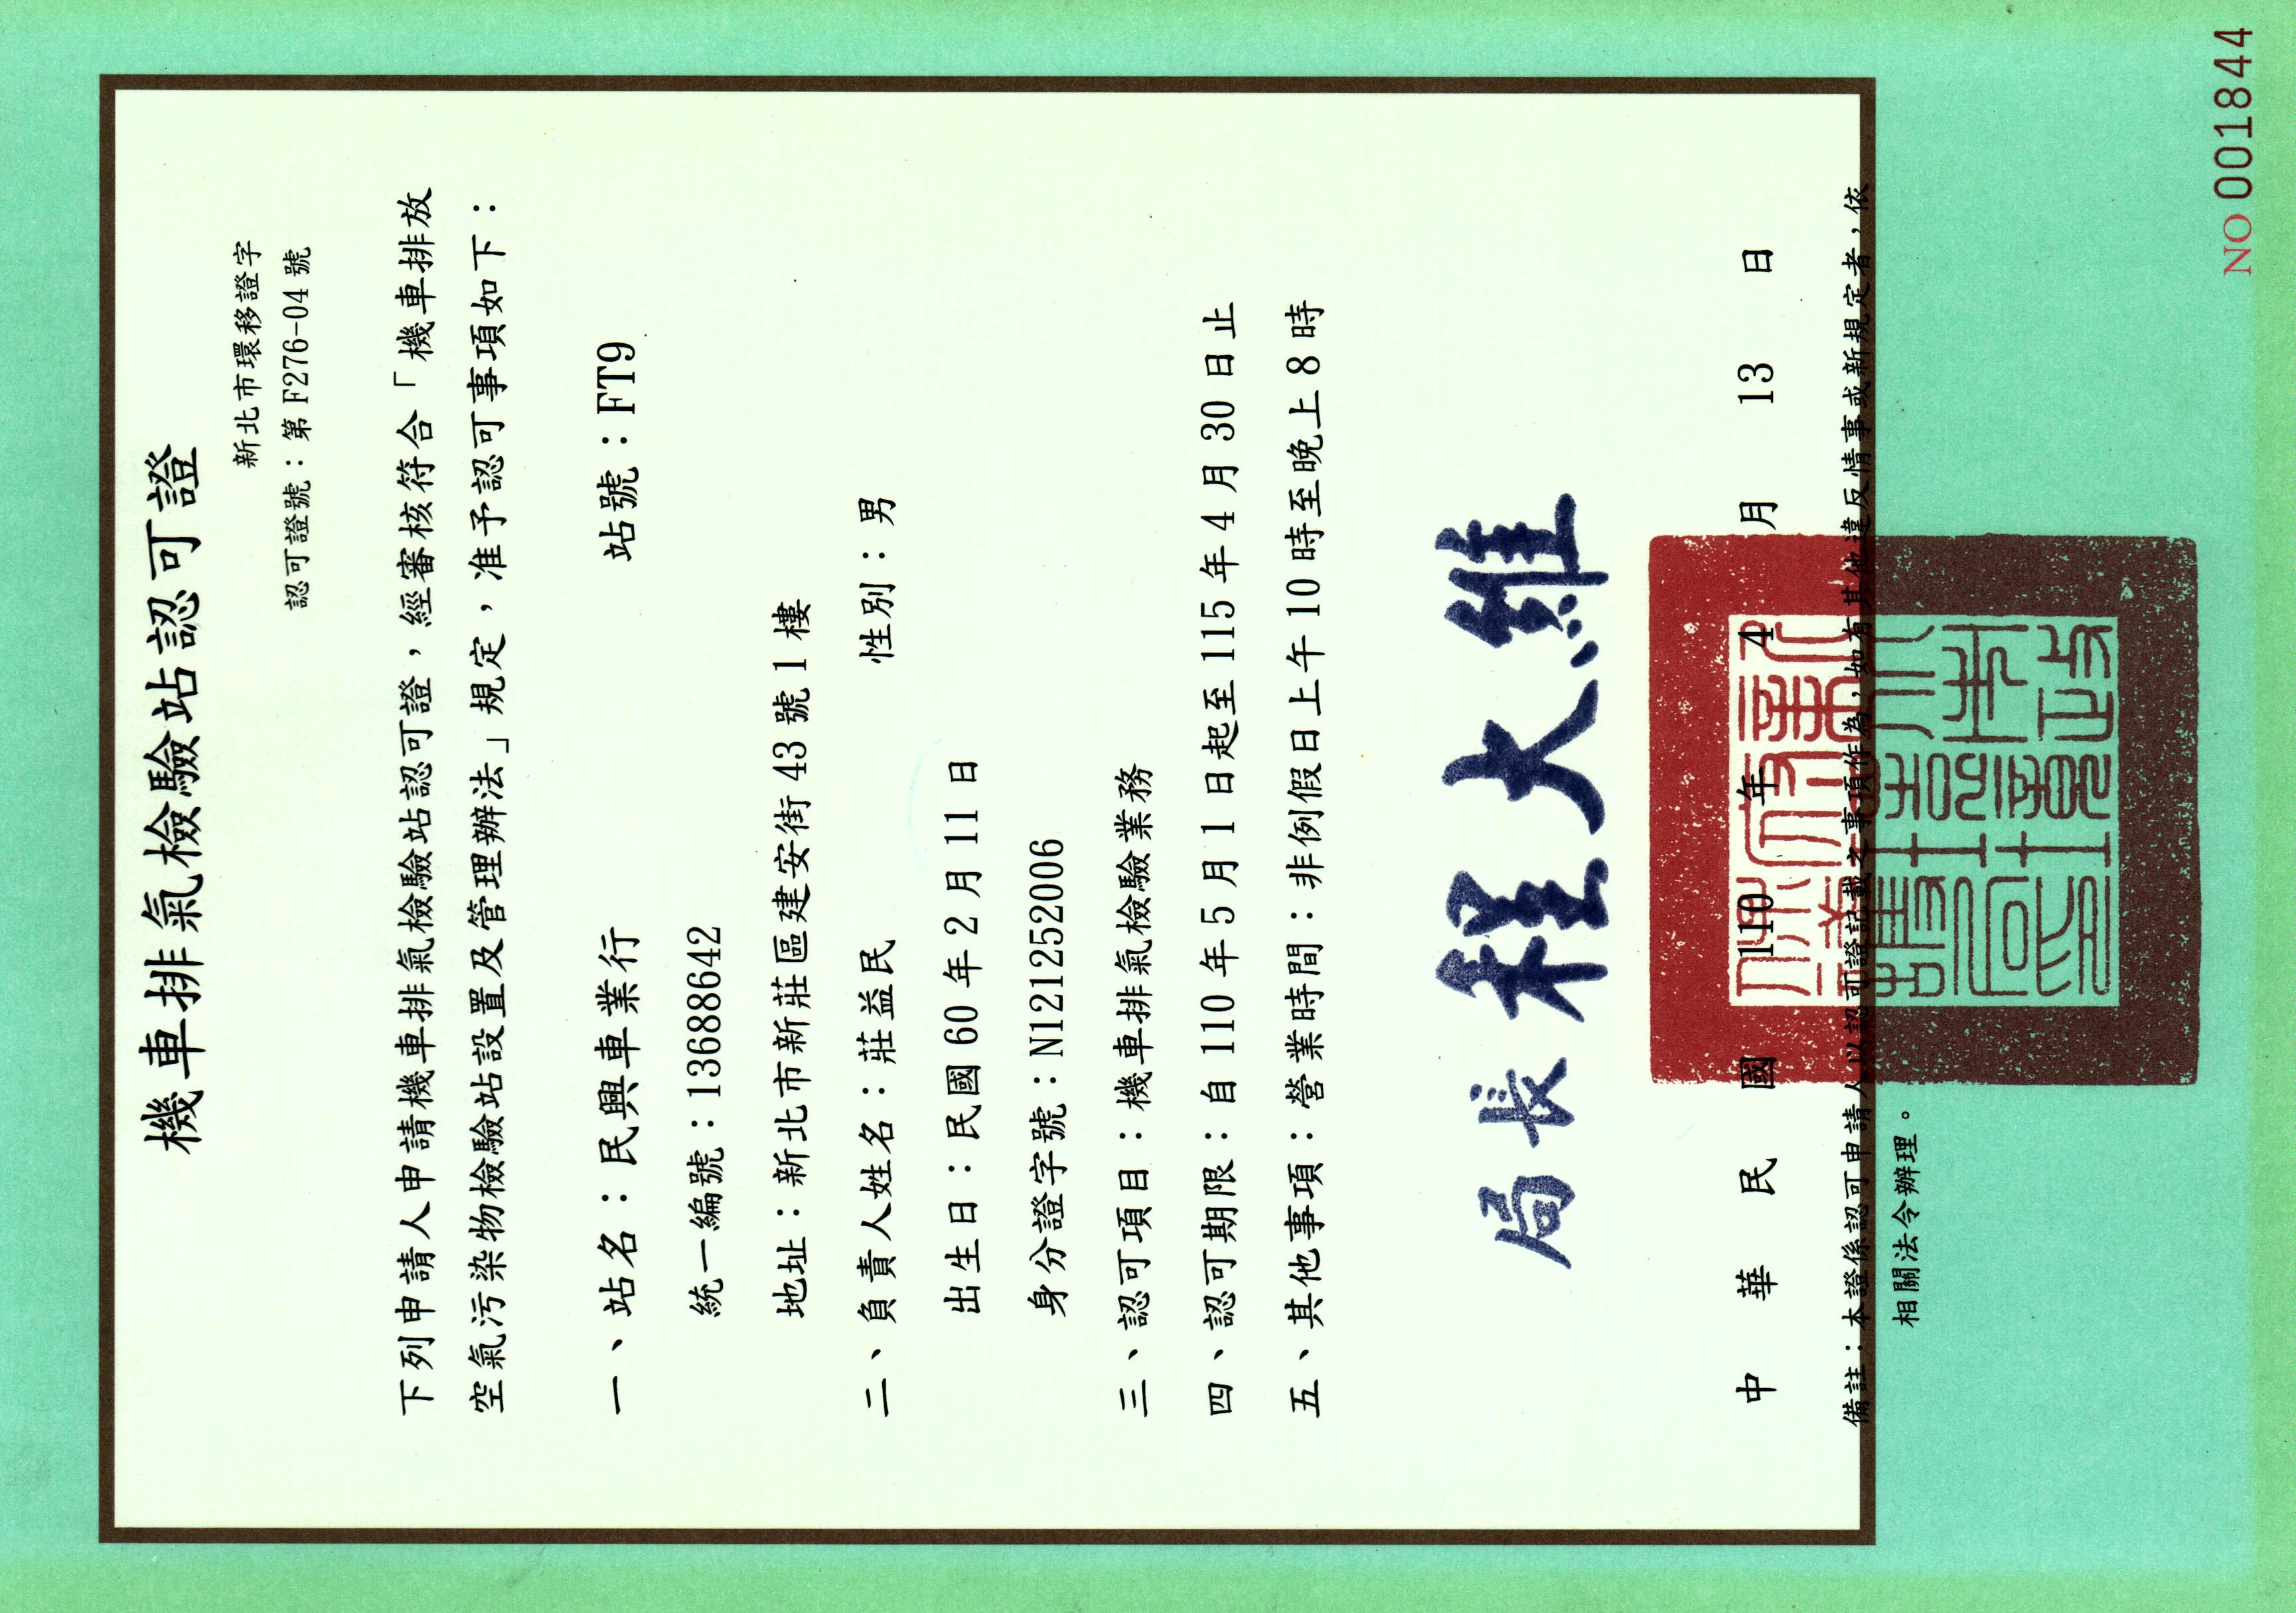 機車排氣檢驗站認可證
新北市環移證字
認可證號：第 F276-04 號
下列申請人申請機車排氣檢驗站認可證，經審核符合「機車排放
空氣污染物檢驗站設置及管理辦法」規定，准予認可事項如下：
一、站名：民興車業行 站號：FT9
統一編號：13688642
地址：新北市新莊區建安街 43 號 1 樓
二、負責人姓名：莊益民 性別：男
出生日：民國 60 年 2 月 11 日
身分證字號：N121252006
三、認可項目：機車排氣檢驗業務
四、認可期限：自 110 年 5 月 1 日起至 115 年 4 月 30 日止
五、其他事項：營業時間：非例假日上午 10 時至晚上 8 時
局長 程大維
中華民國 110 年 4 月 13 日
備註：本證係認可申請人以認可證記載之事項作為，如有其他違反情事或新規定者，依
相關法令辦理。
NO 001844